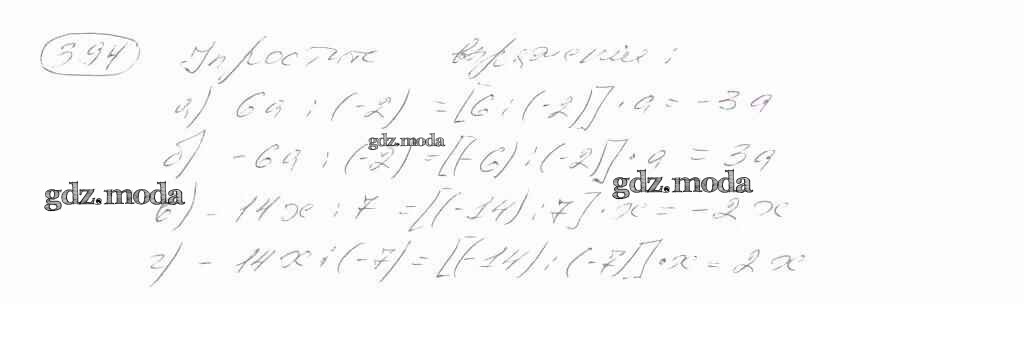 394 Упростите выражение:
а) 6a : (-2) = [6 : (-2)] · a = -3a
gdz.moda
б) -6a : (-2) = [(-6) : (-2)] · a = 3a
gdz.moda gdz.moda
в) -14x : 7 = [(-14) : 7] · x = -2x
г) -14x : (-7) = [(-14) : (-7)] · x = 2x